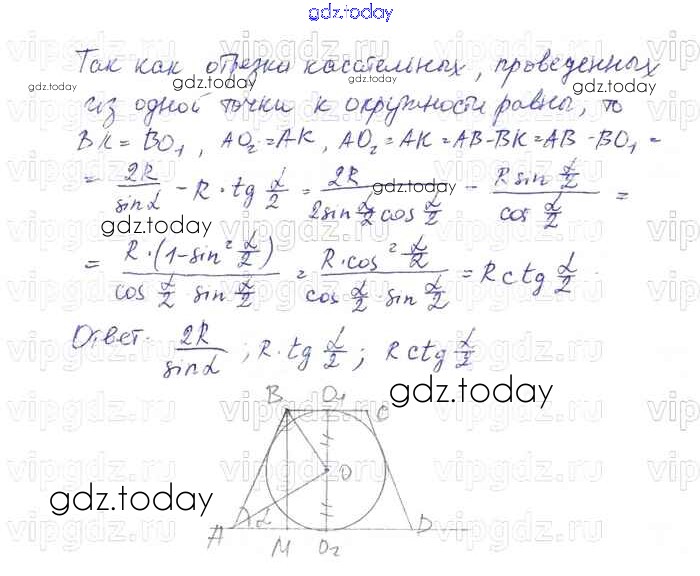 gdz.today
Так как отрезки касательных, проведенных
из одной точки к окружности равны, то
BK = BO₁, AO₂ = AK, AO₂ = AK = AB-BK = AB -BO₁ =
= 2R/sinα - R · tg α/2 = 2R/(2sin α/2 cos α/2) - (R sin α/2)/(cos α/2) =
= (R·(1-sin² α/2))/(cos α/2 · sin α/2) = (R·cos² α/2)/(cos α/2 · sin α/2) = R ctg α/2
Ответ. 2R/sinα ; R · tg α/2 ; R ctg α/2
gdz.today
B O₁ C
O
A α M O₂ D
gdz.today
gdz.today
gdz.today
gdz.today
vipgdz.ru